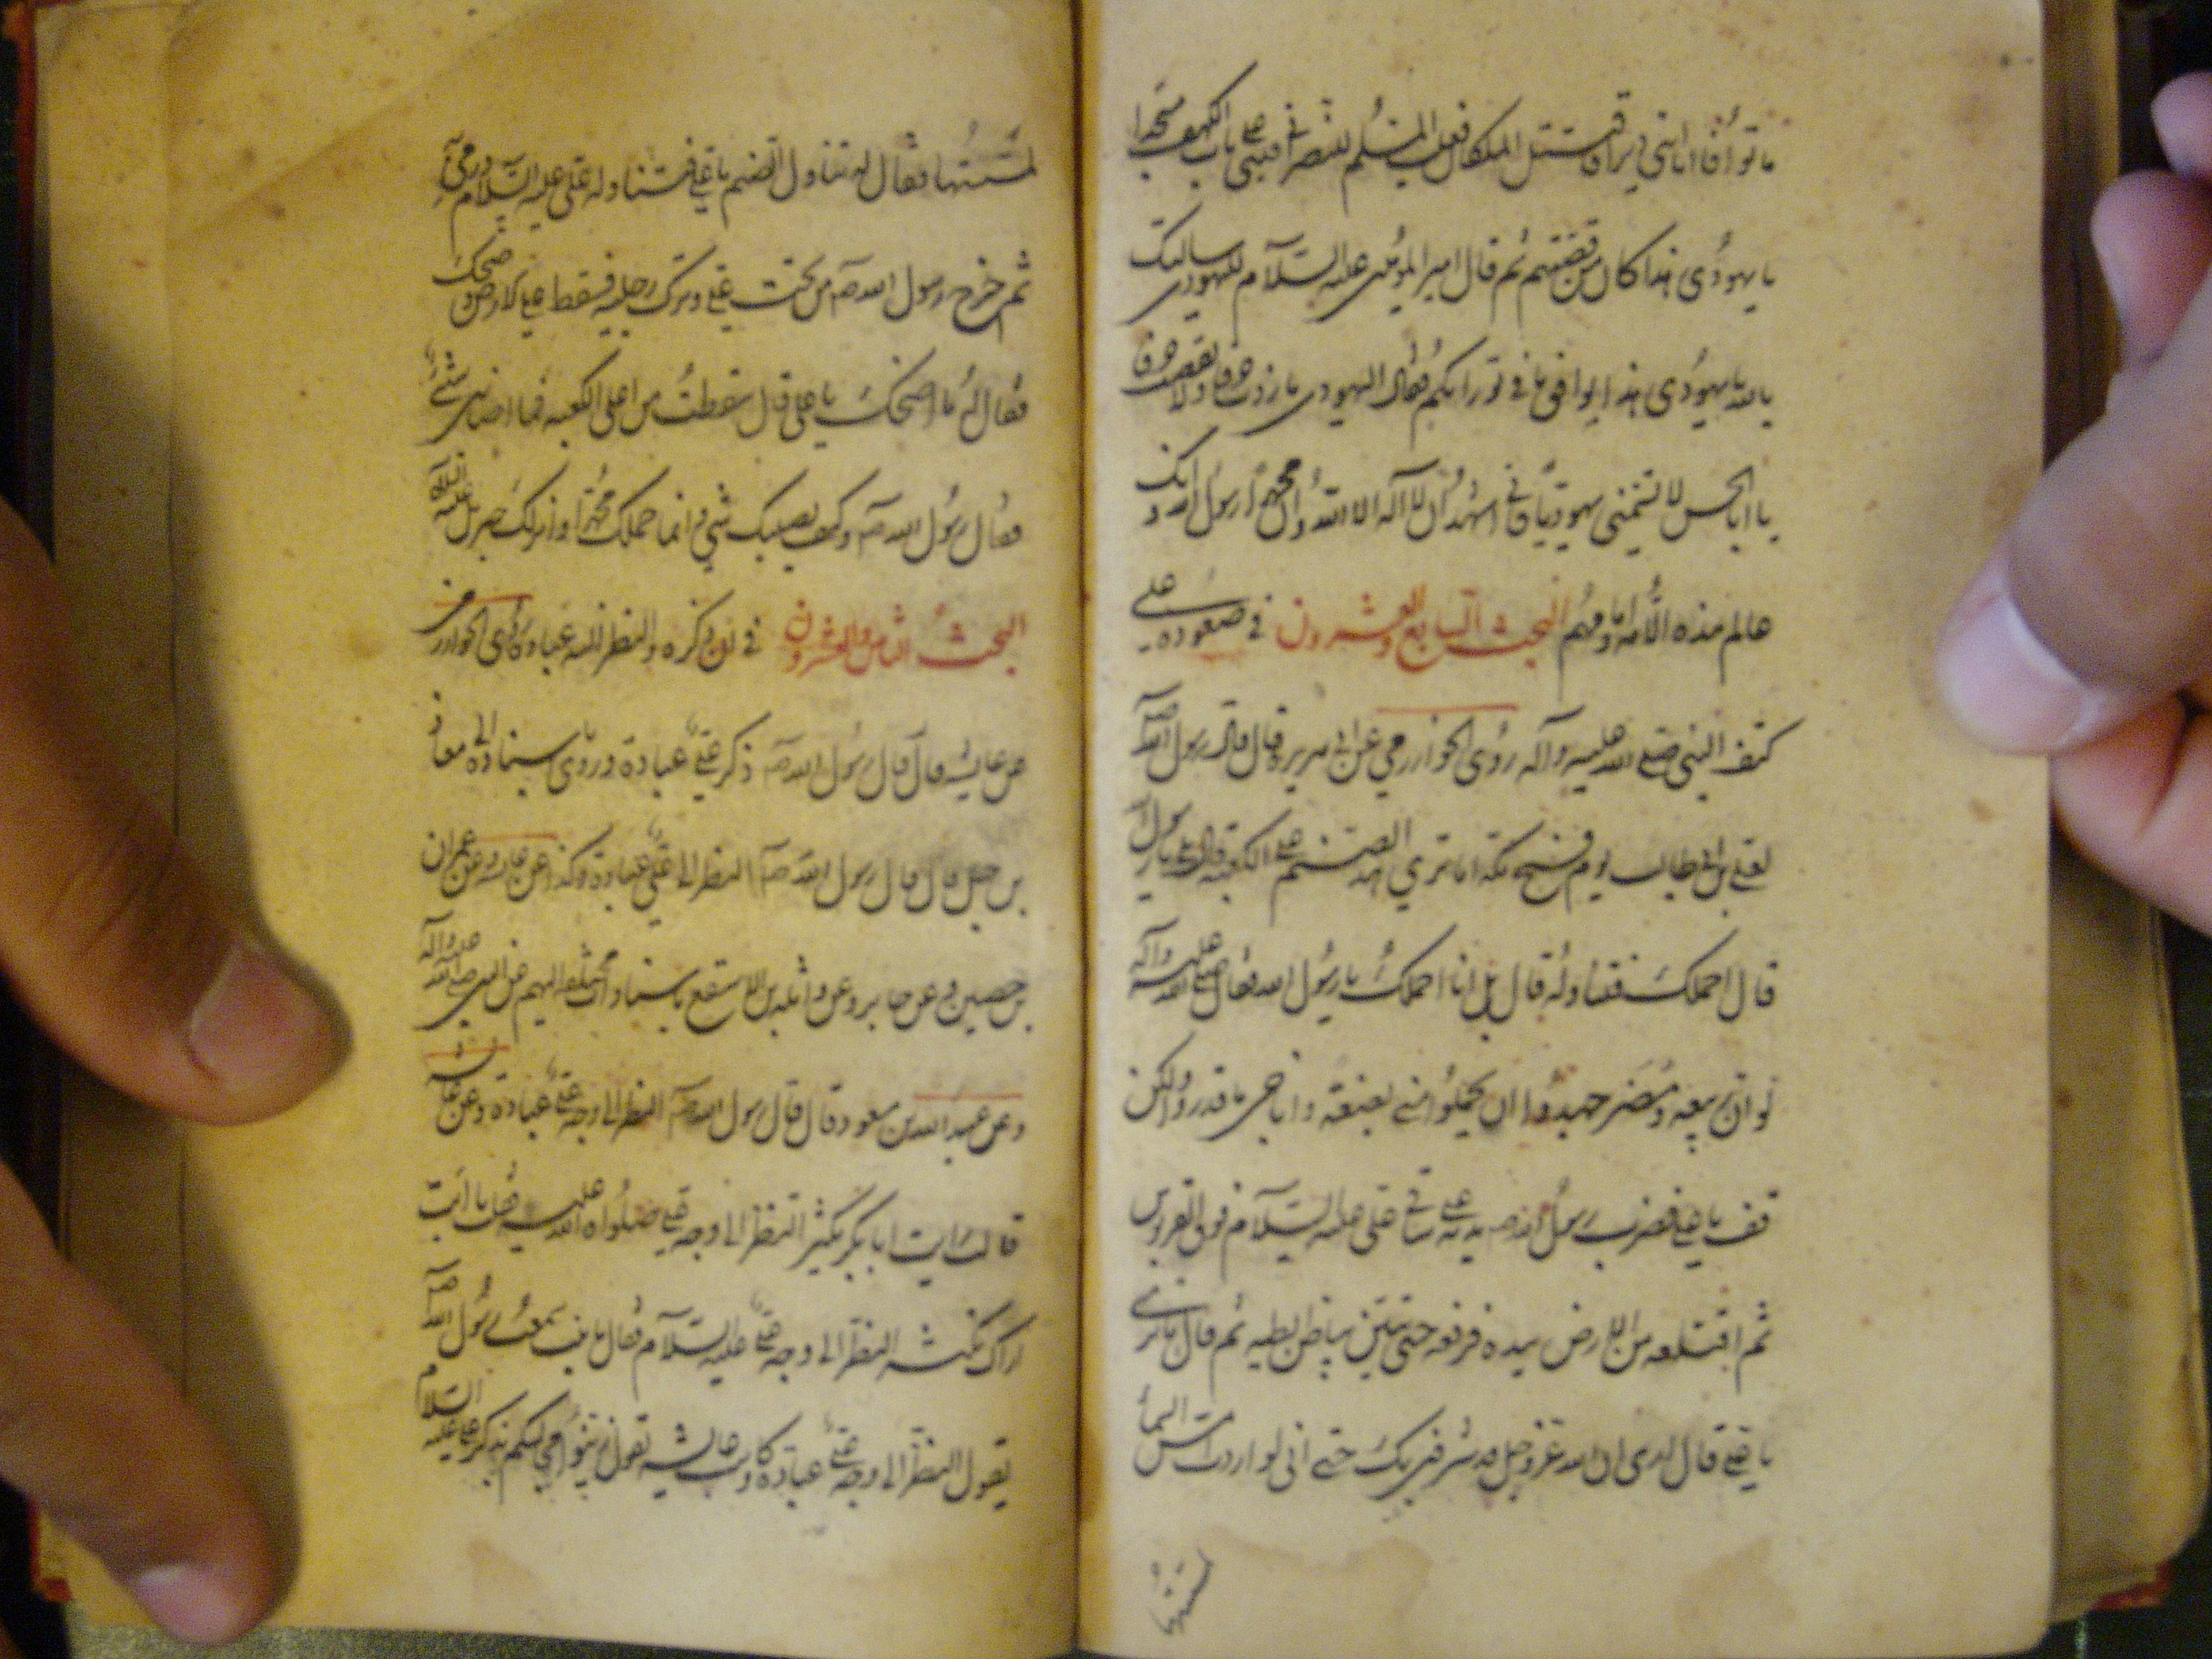 يا يهودي هذا كان من قصتهم ثم قال امير المؤمنين عليه السلام لليهودي سالتك
بالله يا يهودي هذا يوافق ما في توراتكم فقال اليهودي ما زدت حرفا ولا نقصت حرفا
يا ابا الحسن لا تسمني يهوديا فاني اشهد ان لا اله الا الله وان محمدا رسول الله وانك
عالم هذه الامة البحث السابع والعشرون في صعوده على
كتف النبي صلى الله عليه وآله روى الخوارزمي عن ابي هريرة قال قال رسول الله صلى الله
لعلي بن ابي طالب يوم فتح مكة اما ترى هذا الصنم على الكعبة قال بلى يا رسول الله
قال احملك فتناوله قال بل انا احملك يا رسول الله فقال صلى الله عليه وآله
لو ان ربيعة ومضر جهدوا ان يحملوا مني بضعة وانا حي ما قدروا ولكن
قف يا علي فضرب رسول الله صه يديه على ساقي علي عليه السلام فوق القربوس
ثم اقتلعه من الارض بيده فرفعه حتى تبين بياض ابطيه ثم قال ما ترى
يا علي قال ارى ان الله عز وجل قد شرفني بك حتى اني لو اردت امس السماء
لمستها
لمستها فقال له تناول الصنم يا علي فتناوله علي عليه السلام ورمى به
ثم خرج رسول الله صه من تحت علي وترك رجليه فسقط على الارض ضحك
فقال له ما اضحكك يا علي قال سقطت من اعلى الكعبة فما اصابني شيء
فقال رسول الله صه وكيف يصيبك شيء وانما حملك محمد وانزلك جبريل عليه السلام
البحث الثامن والعشرون في ان ذكره والنظر اليه عبادة روى الخوارزمي
عن عايشة قال قال رسول الله صه ذكر علي عبادة وروى باسناده الى معاذ
بن جبل قال قال رسول الله صه النظر الى علي عبادة وكذا عن عايشة وعن عمران
بن حصين وعن جابر وعن واثلة بن الاسقع باسناد متصلة اليهم عن النبي صلى الله عليه وآله
وعن عبد الله بن مسعود قال قال رسول الله صه النظر الى وجه علي عبادة وعن عايشة
قالت رايت ابا بكر يكثر النظر الى وجه علي صلوات الله عليه فقلت يا ابت
اراك تكثر النظر الى وجه علي عليه السلام فقال يا بنية سمعت رسول الله صه
يقول النظر الى وجه علي عبادة وكانت عايشة تقول زينوا مجالسكم بذكر علي عليه السلام